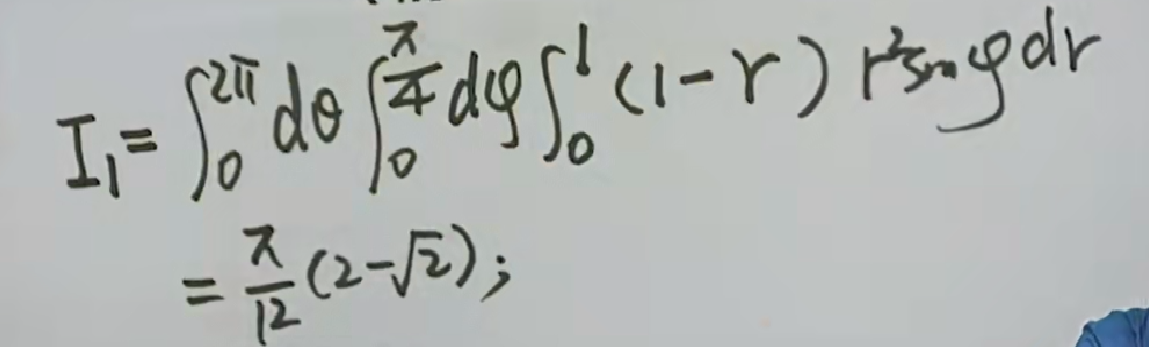 I₁ = ∫₀^{2π} dθ ∫₀^{π/4} dφ ∫₀¹ (1-r) r² sinφ dr
= π/12 (2-√2);